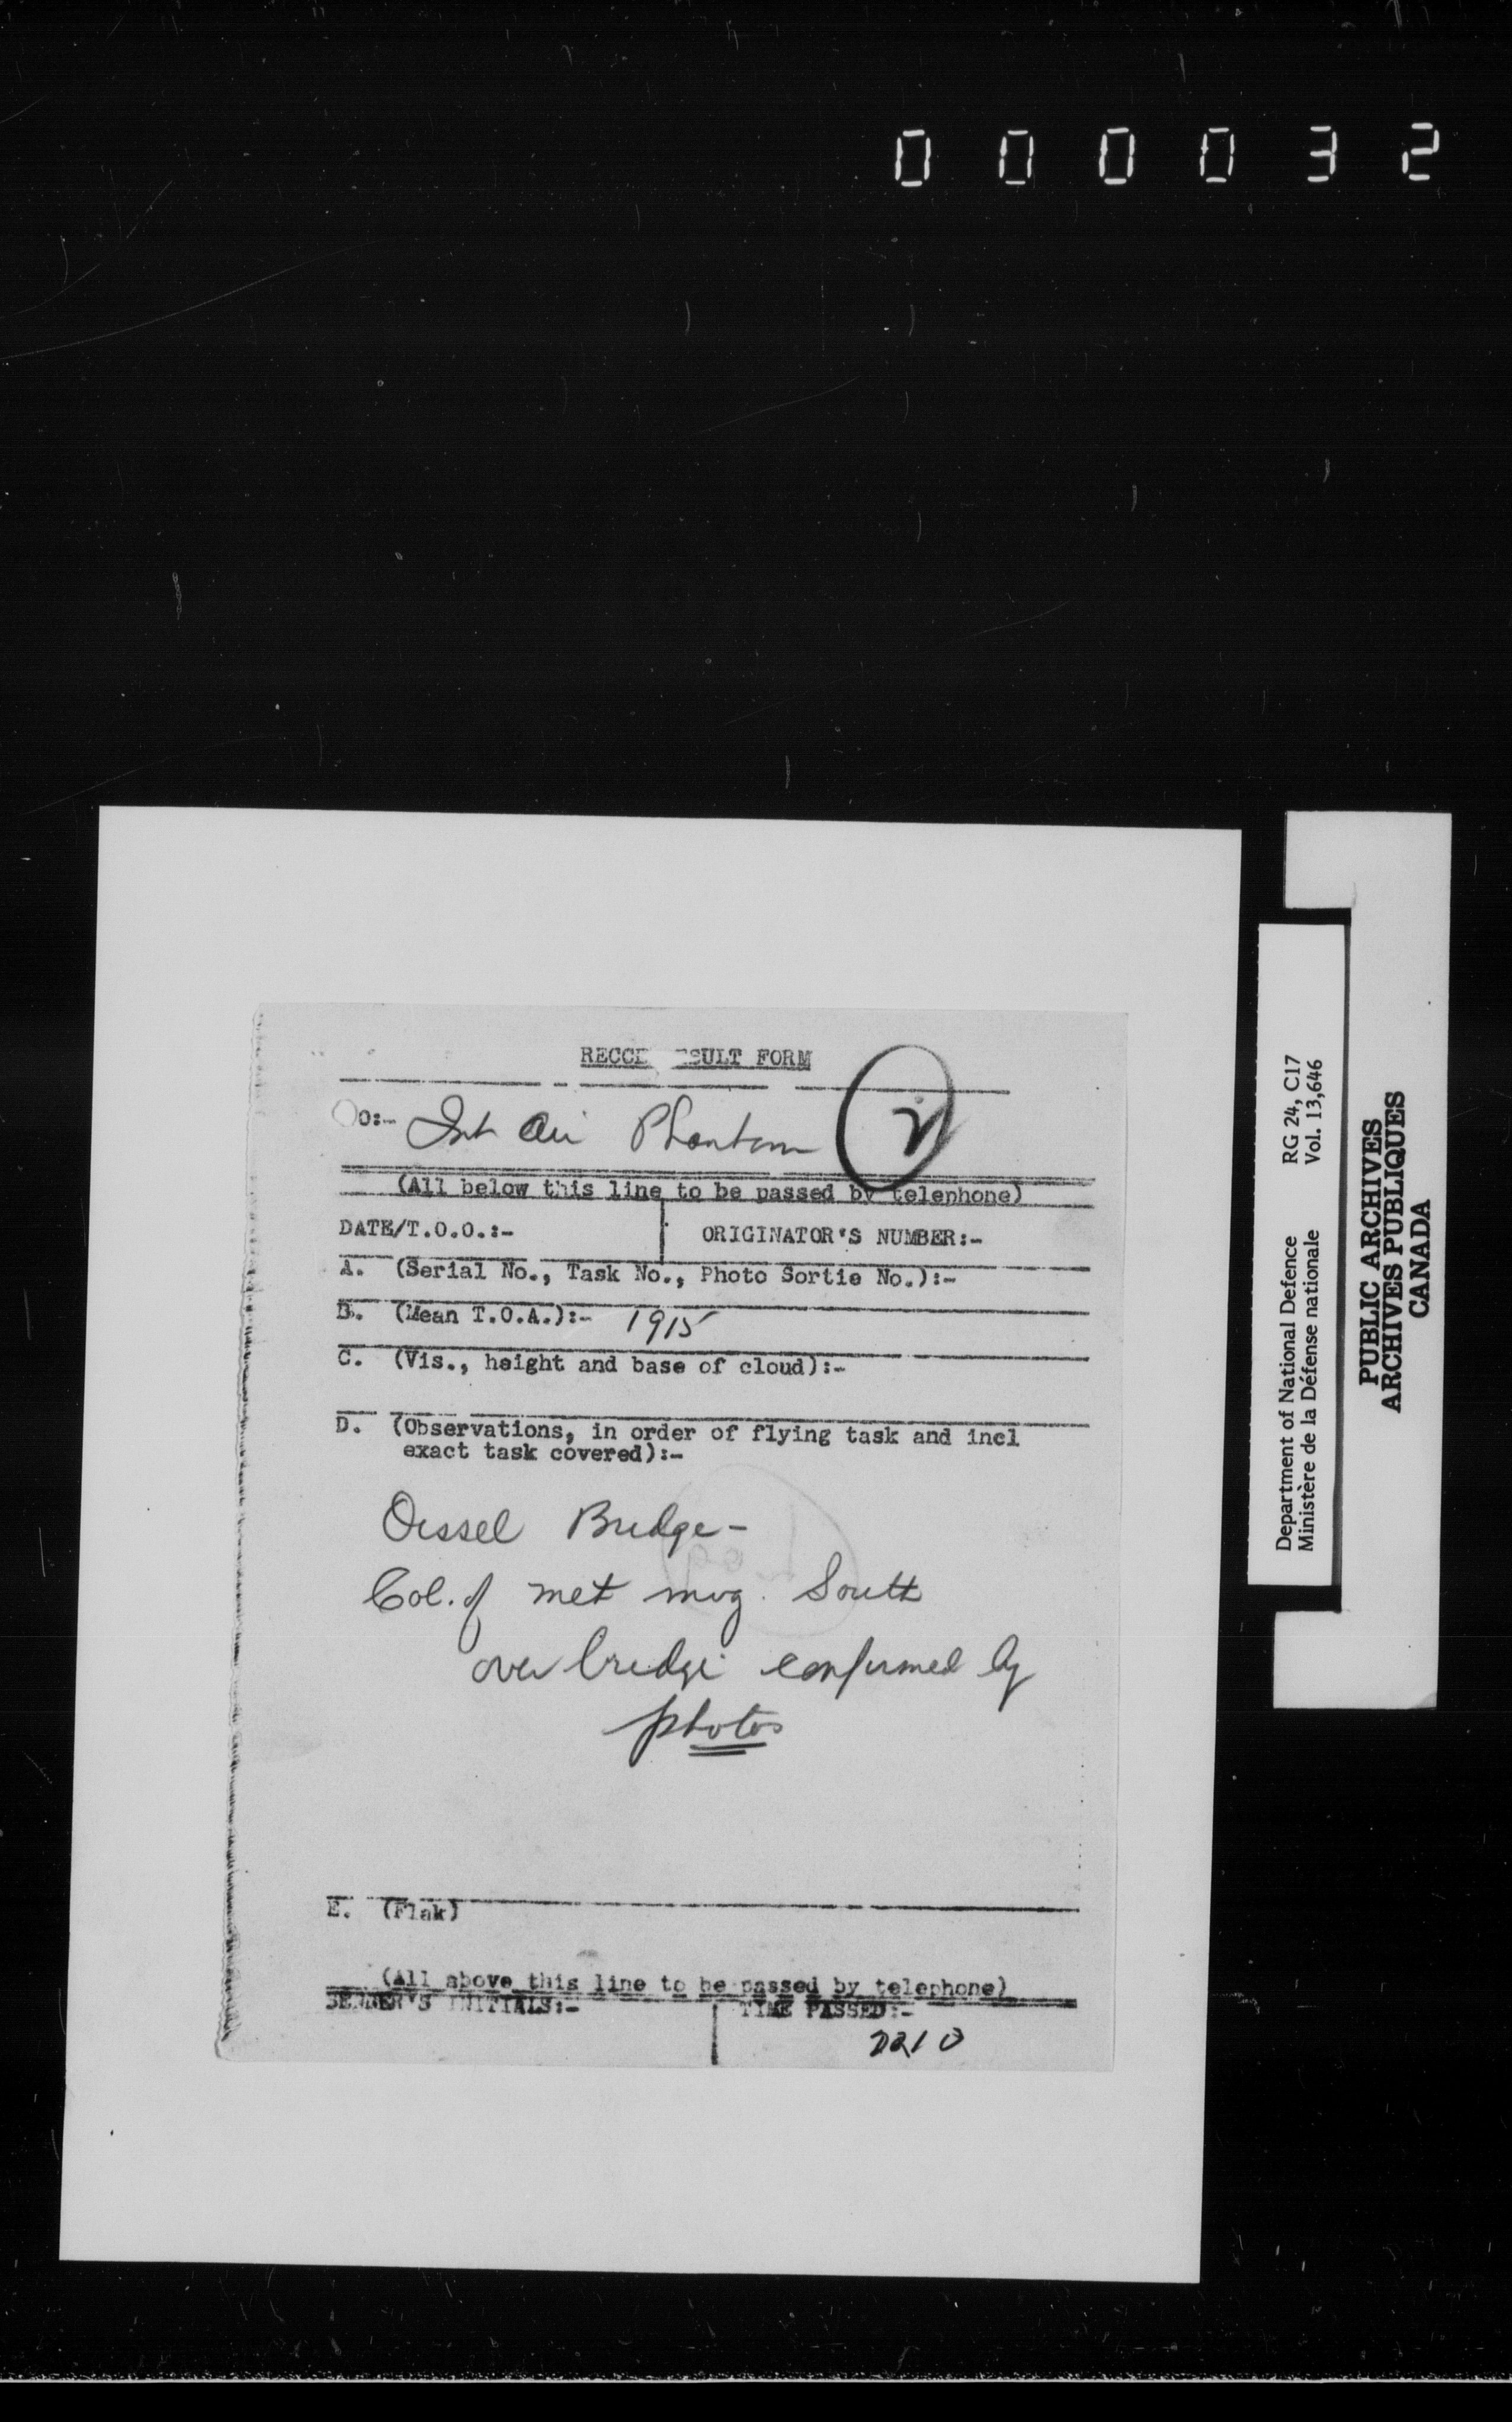 000032
RECCE SULT FORM
O:- Int Air Phantom
(All below this line to be passed by telephone)
DATE/T.O.O.:- ORIGINATOR'S NUMBER:-
A. (Serial No., Task No., Photo Sortie No.):-
B. (Mean T.O.A.):- 1915
C. (Vis., height and base of cloud):-
D. (Observations, in order of flying task and incl
exact task covered):-
Oissel Bridge-
Col. of met mvg. South
over bridge confirmed by
photos
E. (Flak)
(All above this line to be passed by telephone)
SENDER'S INITIALS:- TIME PASSED:-
2210
Department of National Defence RG 24, C17
Ministère de la Défense nationale Vol. 13,646
PUBLIC ARCHIVES
ARCHIVES PUBLIQUES
CANADA